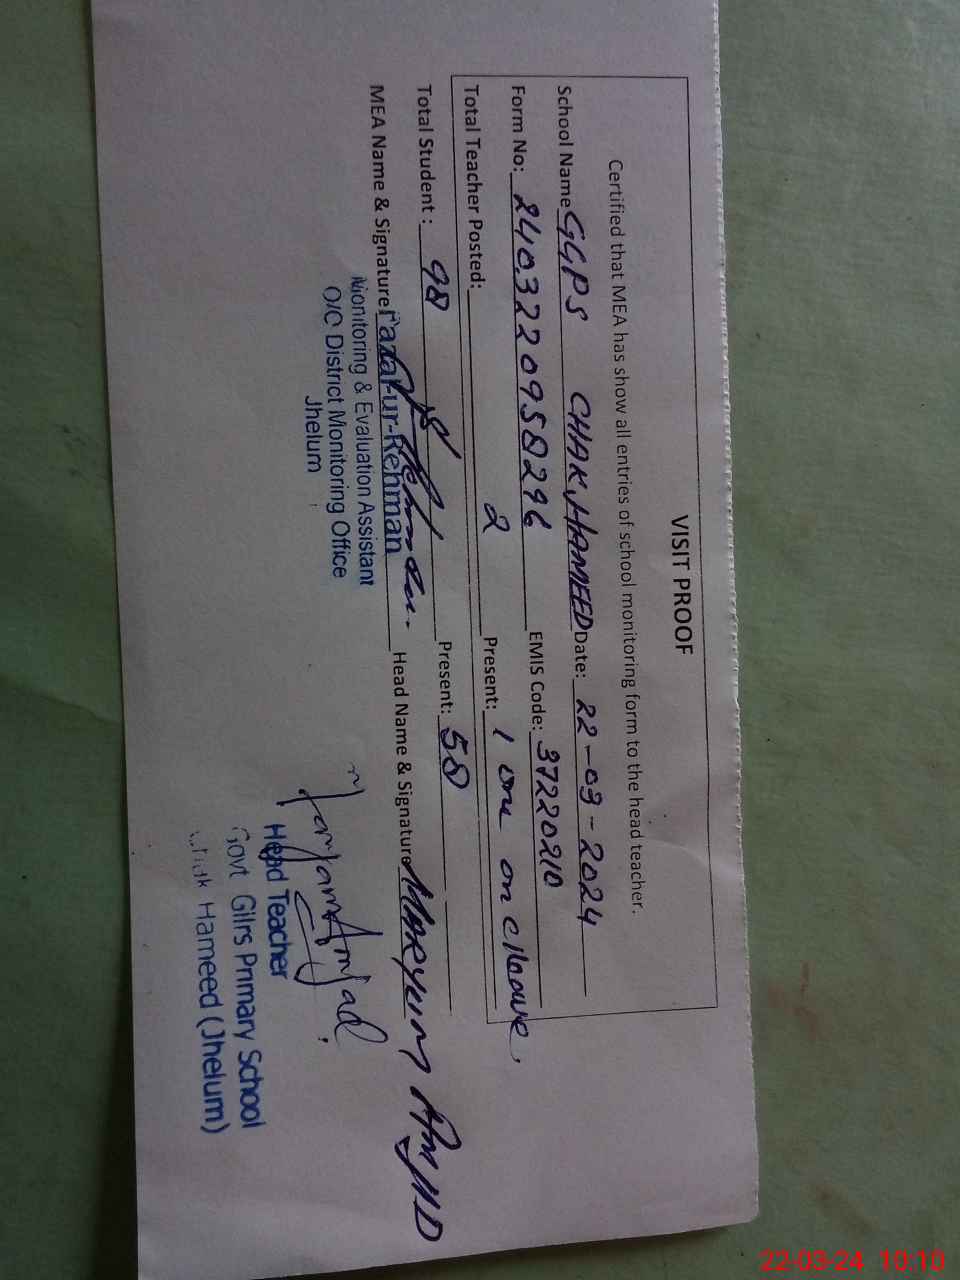 VISIT PROOF
Certified that MEA has show all entries of school monitoring form to the head teacher.
School Name GGPS CHAK HAMEED Date: 22-03-2024
Form No: 2403220958296 EMIS Code: 37220210
Total Teacher Posted: 2 Present: 1 one on cleave.
Total Student : 98 Present: 58
MEA Name & Signature Fazal-ur-Rehman Head Name & Signature MARYUM AMJID
Monitoring & Evaluation Assistant
O/C District Monitoring Office
Jhelum
Maryam Amjad
Head Teacher
Govt Gilrs Primary School
Chak Hameed (Jhelum)
22-03-24 10:10